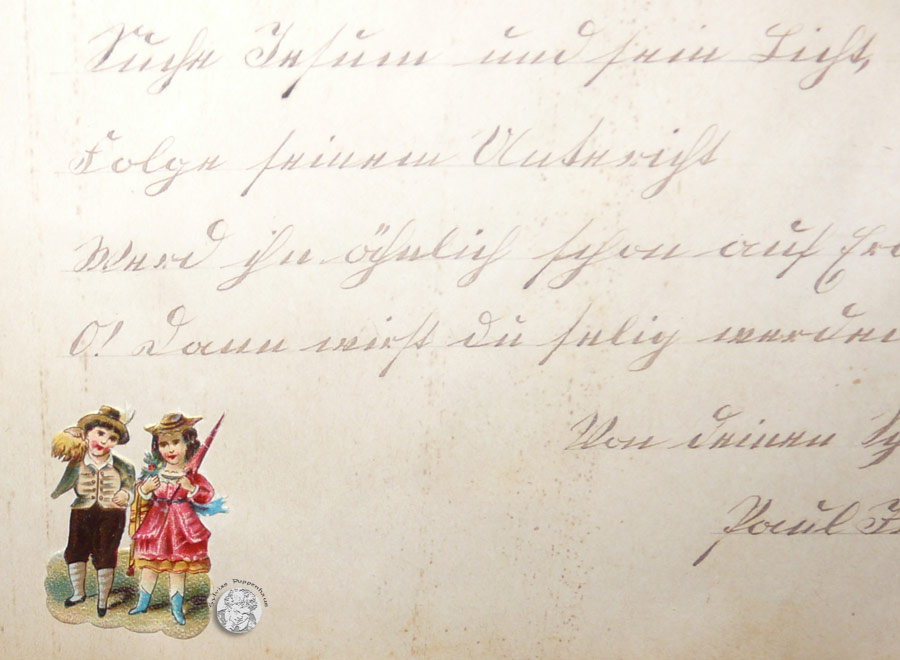 Suche Jesum und sein Licht,
Folge seinem Untericht
Werd ihn ähnlich schon auf Erd
O! Dann wirst du selig werden
Von deinen
Paul
Sylvias Puppenhaus